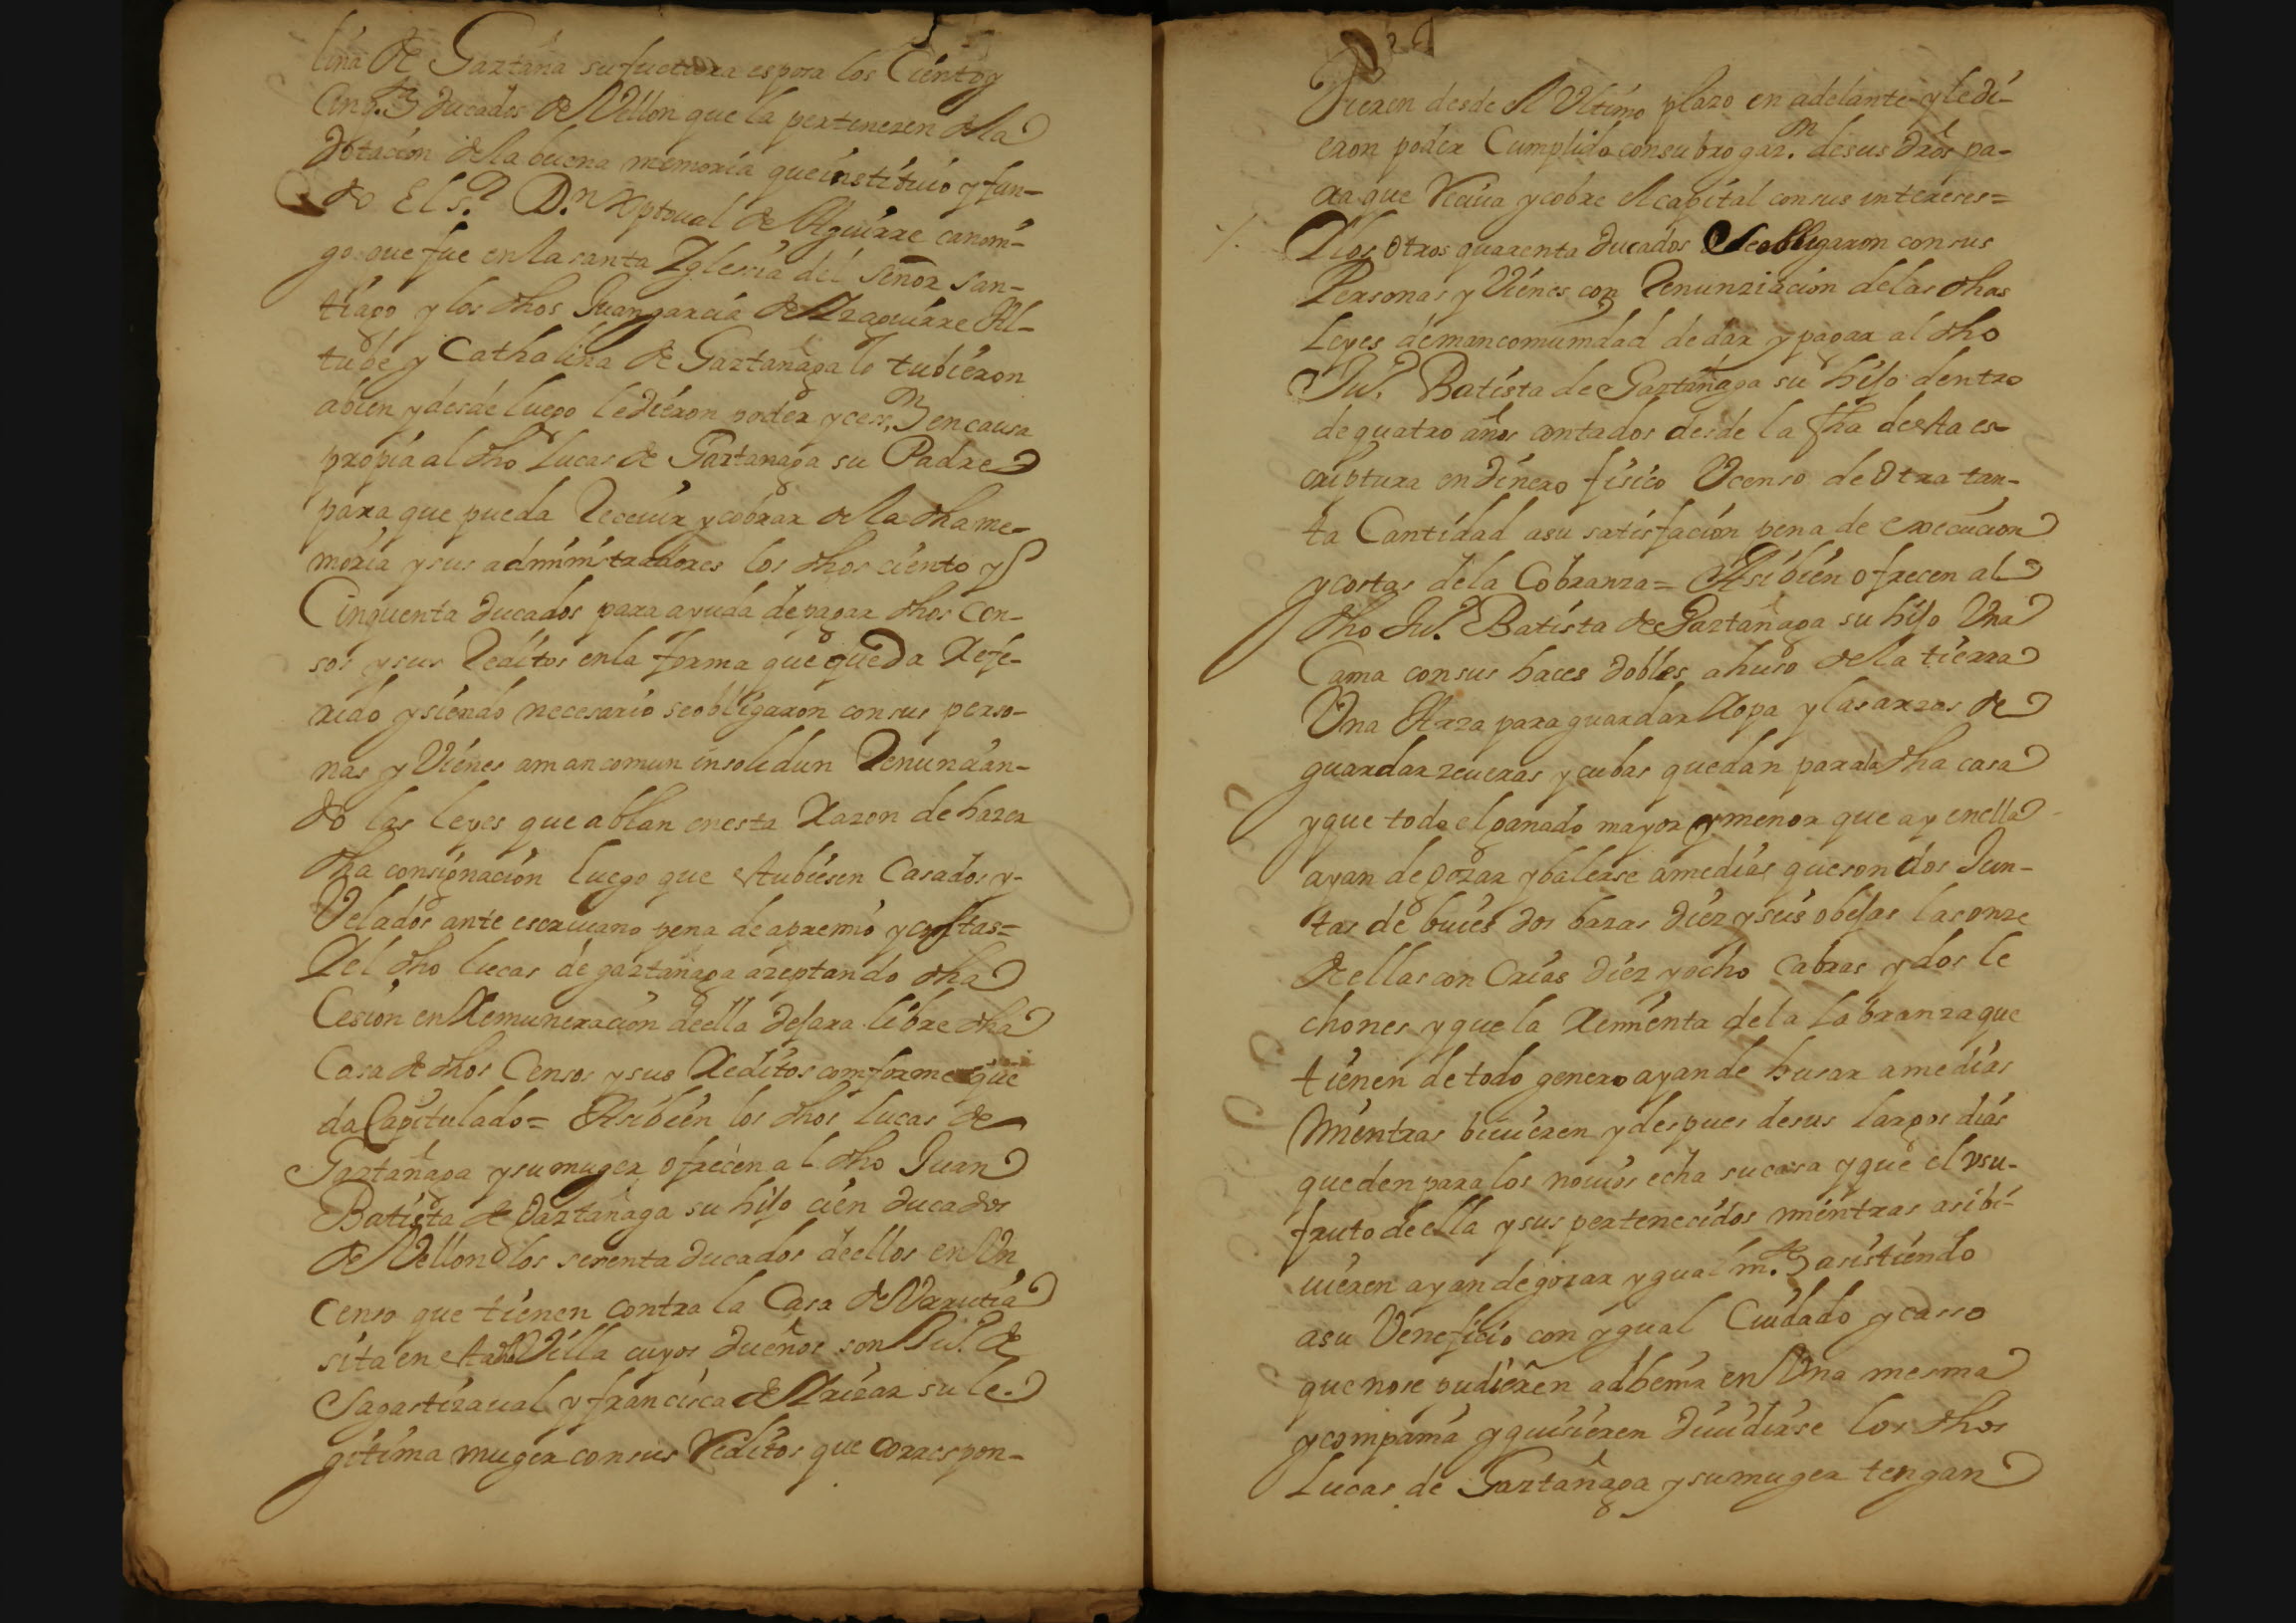 lina de Gaztana su fuctura espora los Ciento y
Cinq.ta ducados de Vellon que la pertenezen de la
dotacion de la buena memoria que instituio y fun-
do El s.r D.n Xptoual de Aguirre canoni-
go que fue en la santa Yglesia del señor san-
tiago y los dhos Juangarcia de Azaguirre Al-
tube y Cathalina de Gaztañaga lo tubieron
abien y desde luego le dieron poder y cess.on en causa
propia al dho Lucas de Gaztanaga su Padre
para que pueda Receuir y cobrar de la dha me-
moria y sus administradores los dhos ciento y
Cinquenta ducados para ayuda de pagar dhos Cen-
sos y sus Reditos en la forma que queda Refe-
rido y siendo necesario se obligaron con sus perso-
nas y Vienes amancomun insolidun Renuncian-
do las leyes que ablan en esta Razon de hazer
dha consignacion luego que estubiesen Casados y
Velados ante escriuano pena de apremio y costas=
Y el dho lucas de gaztañaga azeptando dha
Cesion en Remuneracion de ella dejara libre dha
Casa de dhos Censos y sus Reditos comforme que
da Capitulado= Asibien los dhos lucas de
Gaztañaga y su muger ofrecen al dho Juan
Batista de Gaztañaga su hijo cien ducados
de Vellon los sesenta ducados de ellos en Vn
Censo que tienen contra la Casa de Vrrutia
sita en esta dha Villa cuyos dueños son Ju.o de
Sagastizaual y francisca de Arizar su le-
gitima muger con sus Reditos que correspon-
dieren desde el Vltimo plazo en adelante y le di-
eron poder Cumplido con subrogaz.on de sus dros pa-
ra que Reciua y cobre el capital con sus intereses=
Y los otros quarenta ducados se obligaron con sus
Personas y Vienes con Renunziacion de las dhas
Leyes de mancomunidad de dar y pagar al dho
Ju.o Batista de Gaztañaga su hijo dentro
de quatro años contados desde la fha de esta es-
criptura en dinero fisico V censo de otra tan-
ta Cantidad a su satisfacion pena de execucion
y costas de la Cobranza= Asibien ofrecen al
dho Ju.o Batista de Gaztañaga su hijo Vna
Cama con sus haces dobles a huso de la tierra
Vna Arza para guardar Ropa y las arzas de
guardar zeueras y cubas quedan para la dha casa
y que todo el ganado mayor y menor que ay en ella
ayan de gozar y balerse a medias que son dos Jun-
tas de buies dos bazas diez y seis obejas las onze
de ellas con Crias diez y ocho Cabras y dos le
chones y que la Remienta de la Labranza que
tienen de todo genero ayan de husar a medias
Mientras biuieren y despues de sus largos dias
queden para los nouios echa su casa y que el vsu-
fruto de ella y sus pertenecidos mientras asi bi-
uieren ayan de gozar ygual m.te asistiendo
a su Veneficio con ygual Cuidado y casso
que no se pudieren adbenir en Vna mesma
y compania y quisieren diuidirse los dhos
Lucas de Gaztañaga y su muger tengan